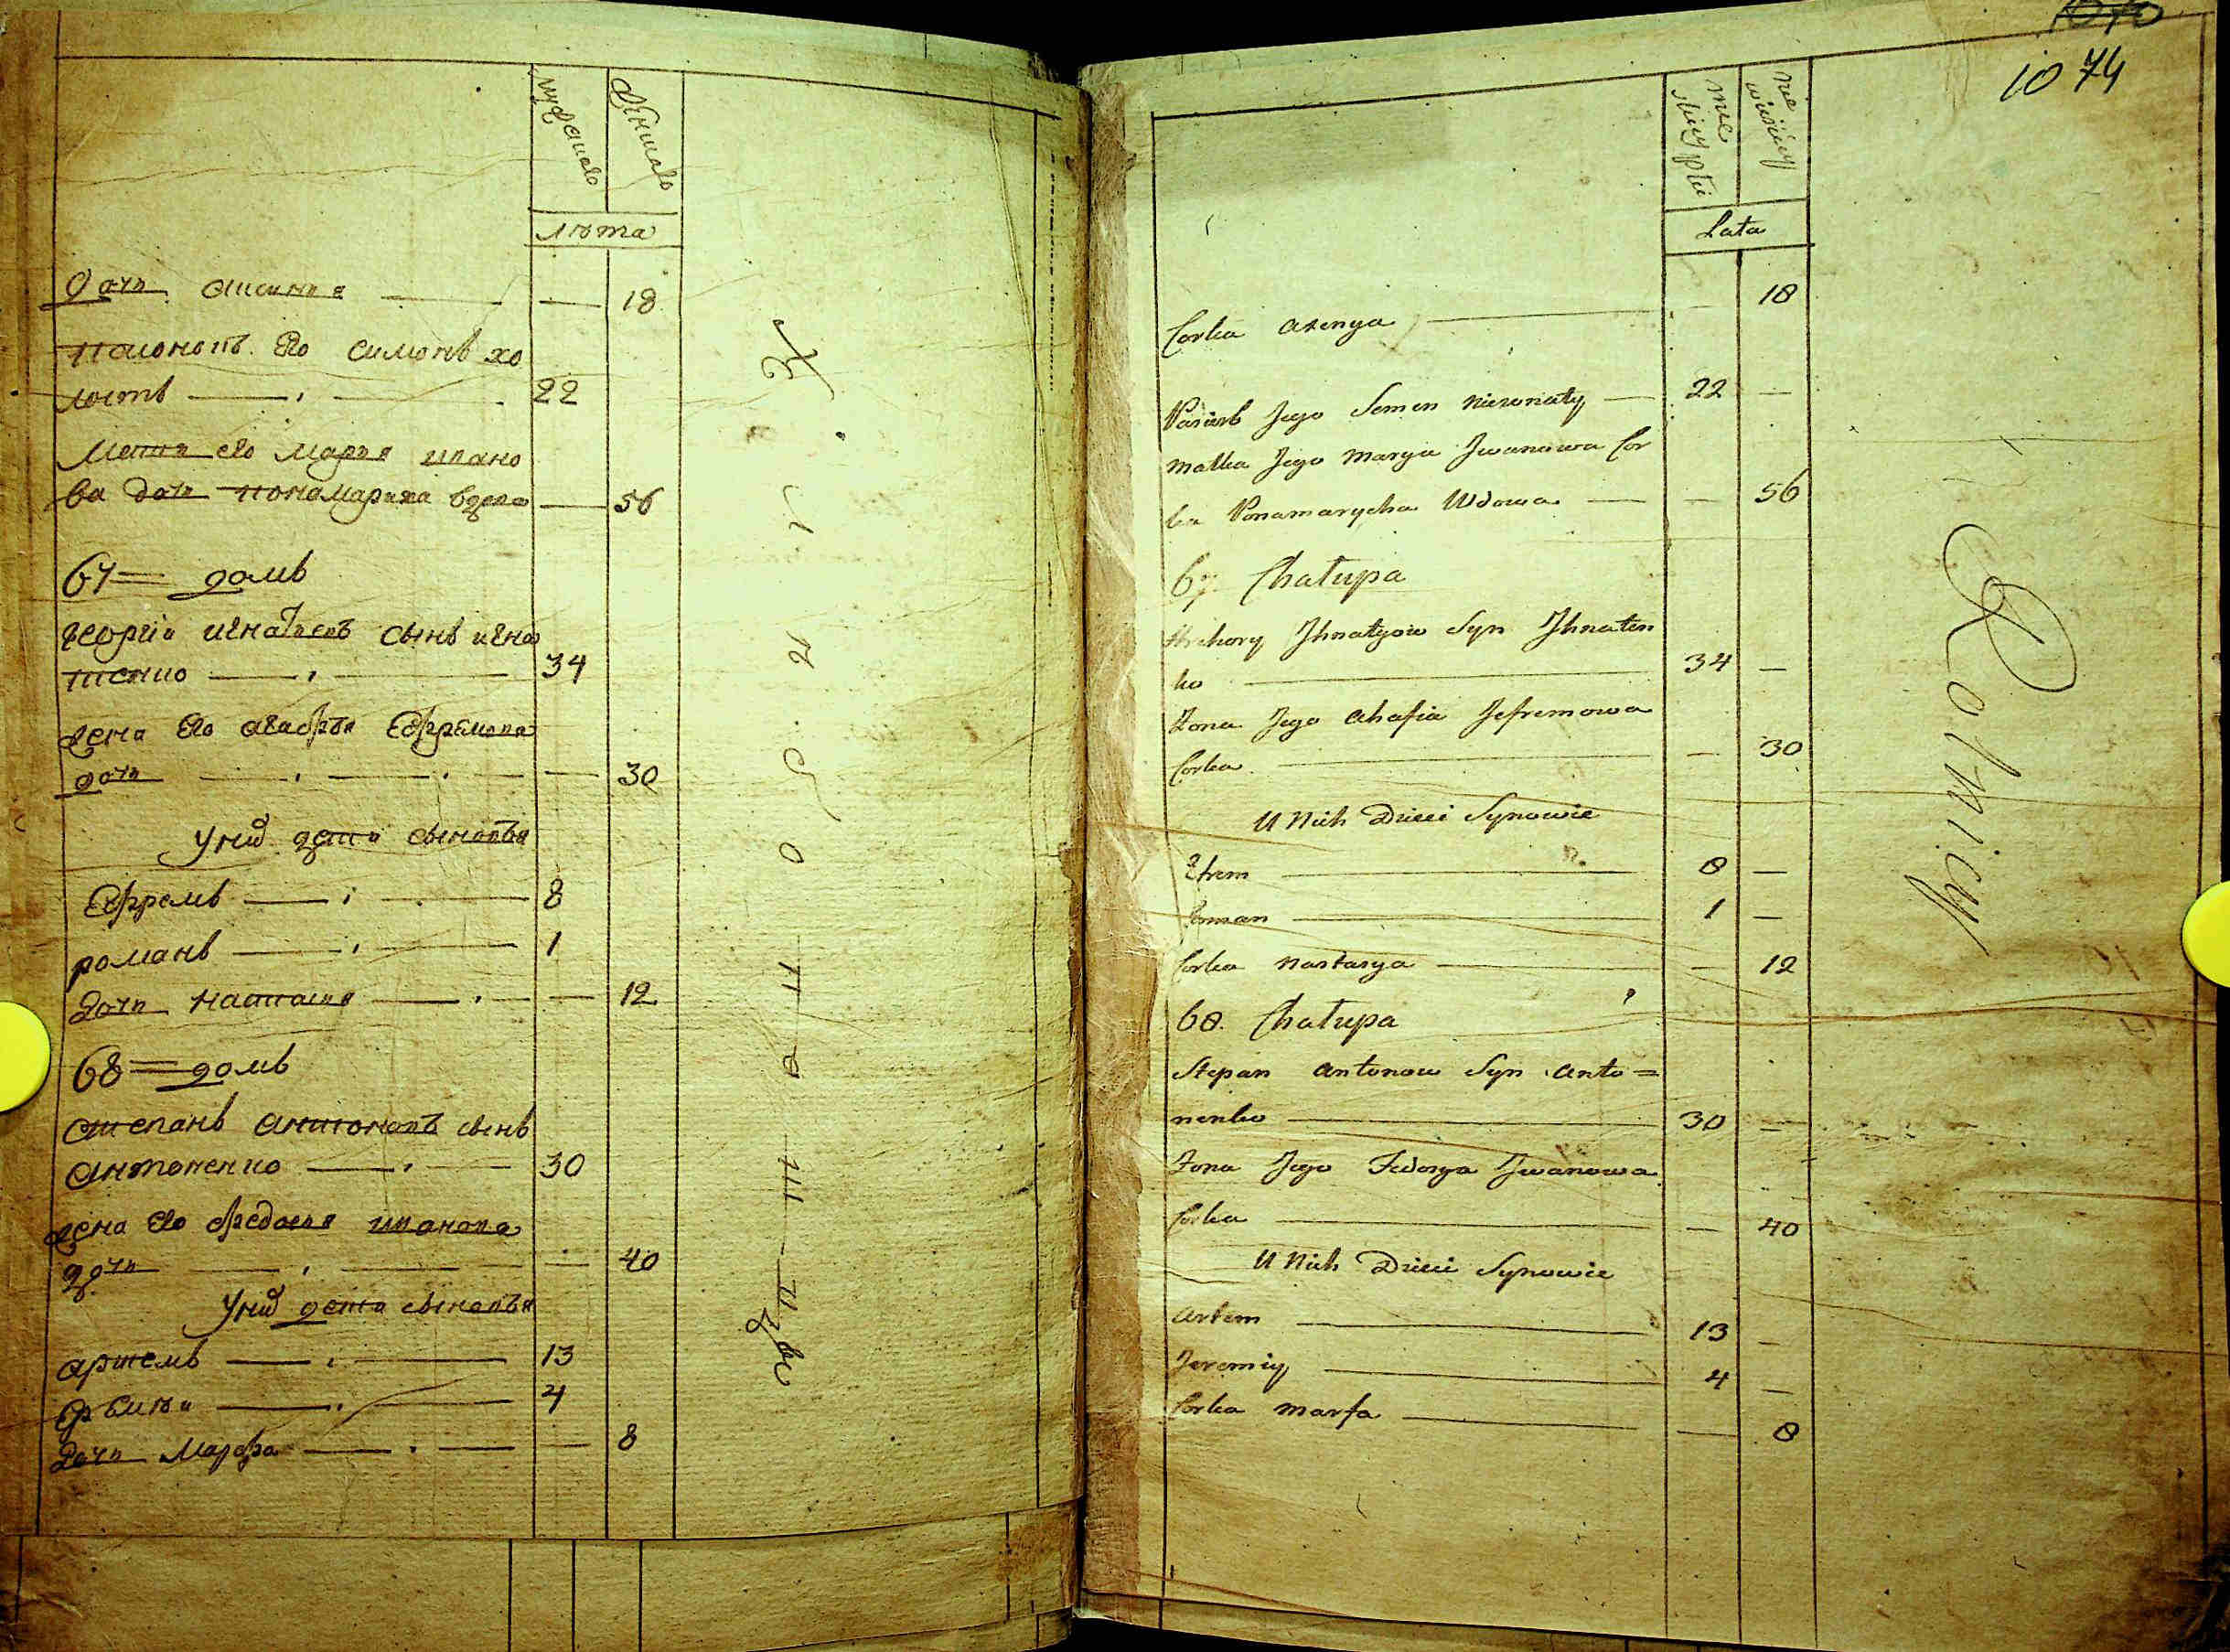 мужеска
женска
лѣта
дочь Аксиния 18
пасонокъ Его симонъ хо
лостъ 22
Мати его марья ивано
ва дочь пономариха вдова 56
67 домъ
георгiи игнатиевъ сынъ игна
тиенко 34
жена Его агафья Ефремова
дочь 30
у них дети сыновья
Ефремъ 8
романъ 1
дочь настасия 12
68 домъ
степанъ антоновъ сынъ
антоненко 30
жена Его федосия иванова
дочь 40
у них дети сыновья
артемъ 13
4
дочь Марфа 8
1074
męskiey płci
niewieściey
Lata
Corka axenya 18
Pasierb Jego Semen nieżonaty 22
matka Jego marya Jwanowa Cor
ka Ponamarycha Wdowa 56
67 Chałupa
Hrehory Jhnatyow Syn Jhnaten
ko 34
Żona Jego ahafia Jefremowa
Corka 30
U Nich Dzieci Synowie
Efrem 8
Roman 1
Corka nastasya 12
68. Chałupa
Stepan antonow Syn anto=
nenko 30
Żona Jego Fedosya Jwanowa
Corka 40
U Nich Dzieci Synowie
artem 13
Jeremiy 4
Corka marfa 8
Rolnicy